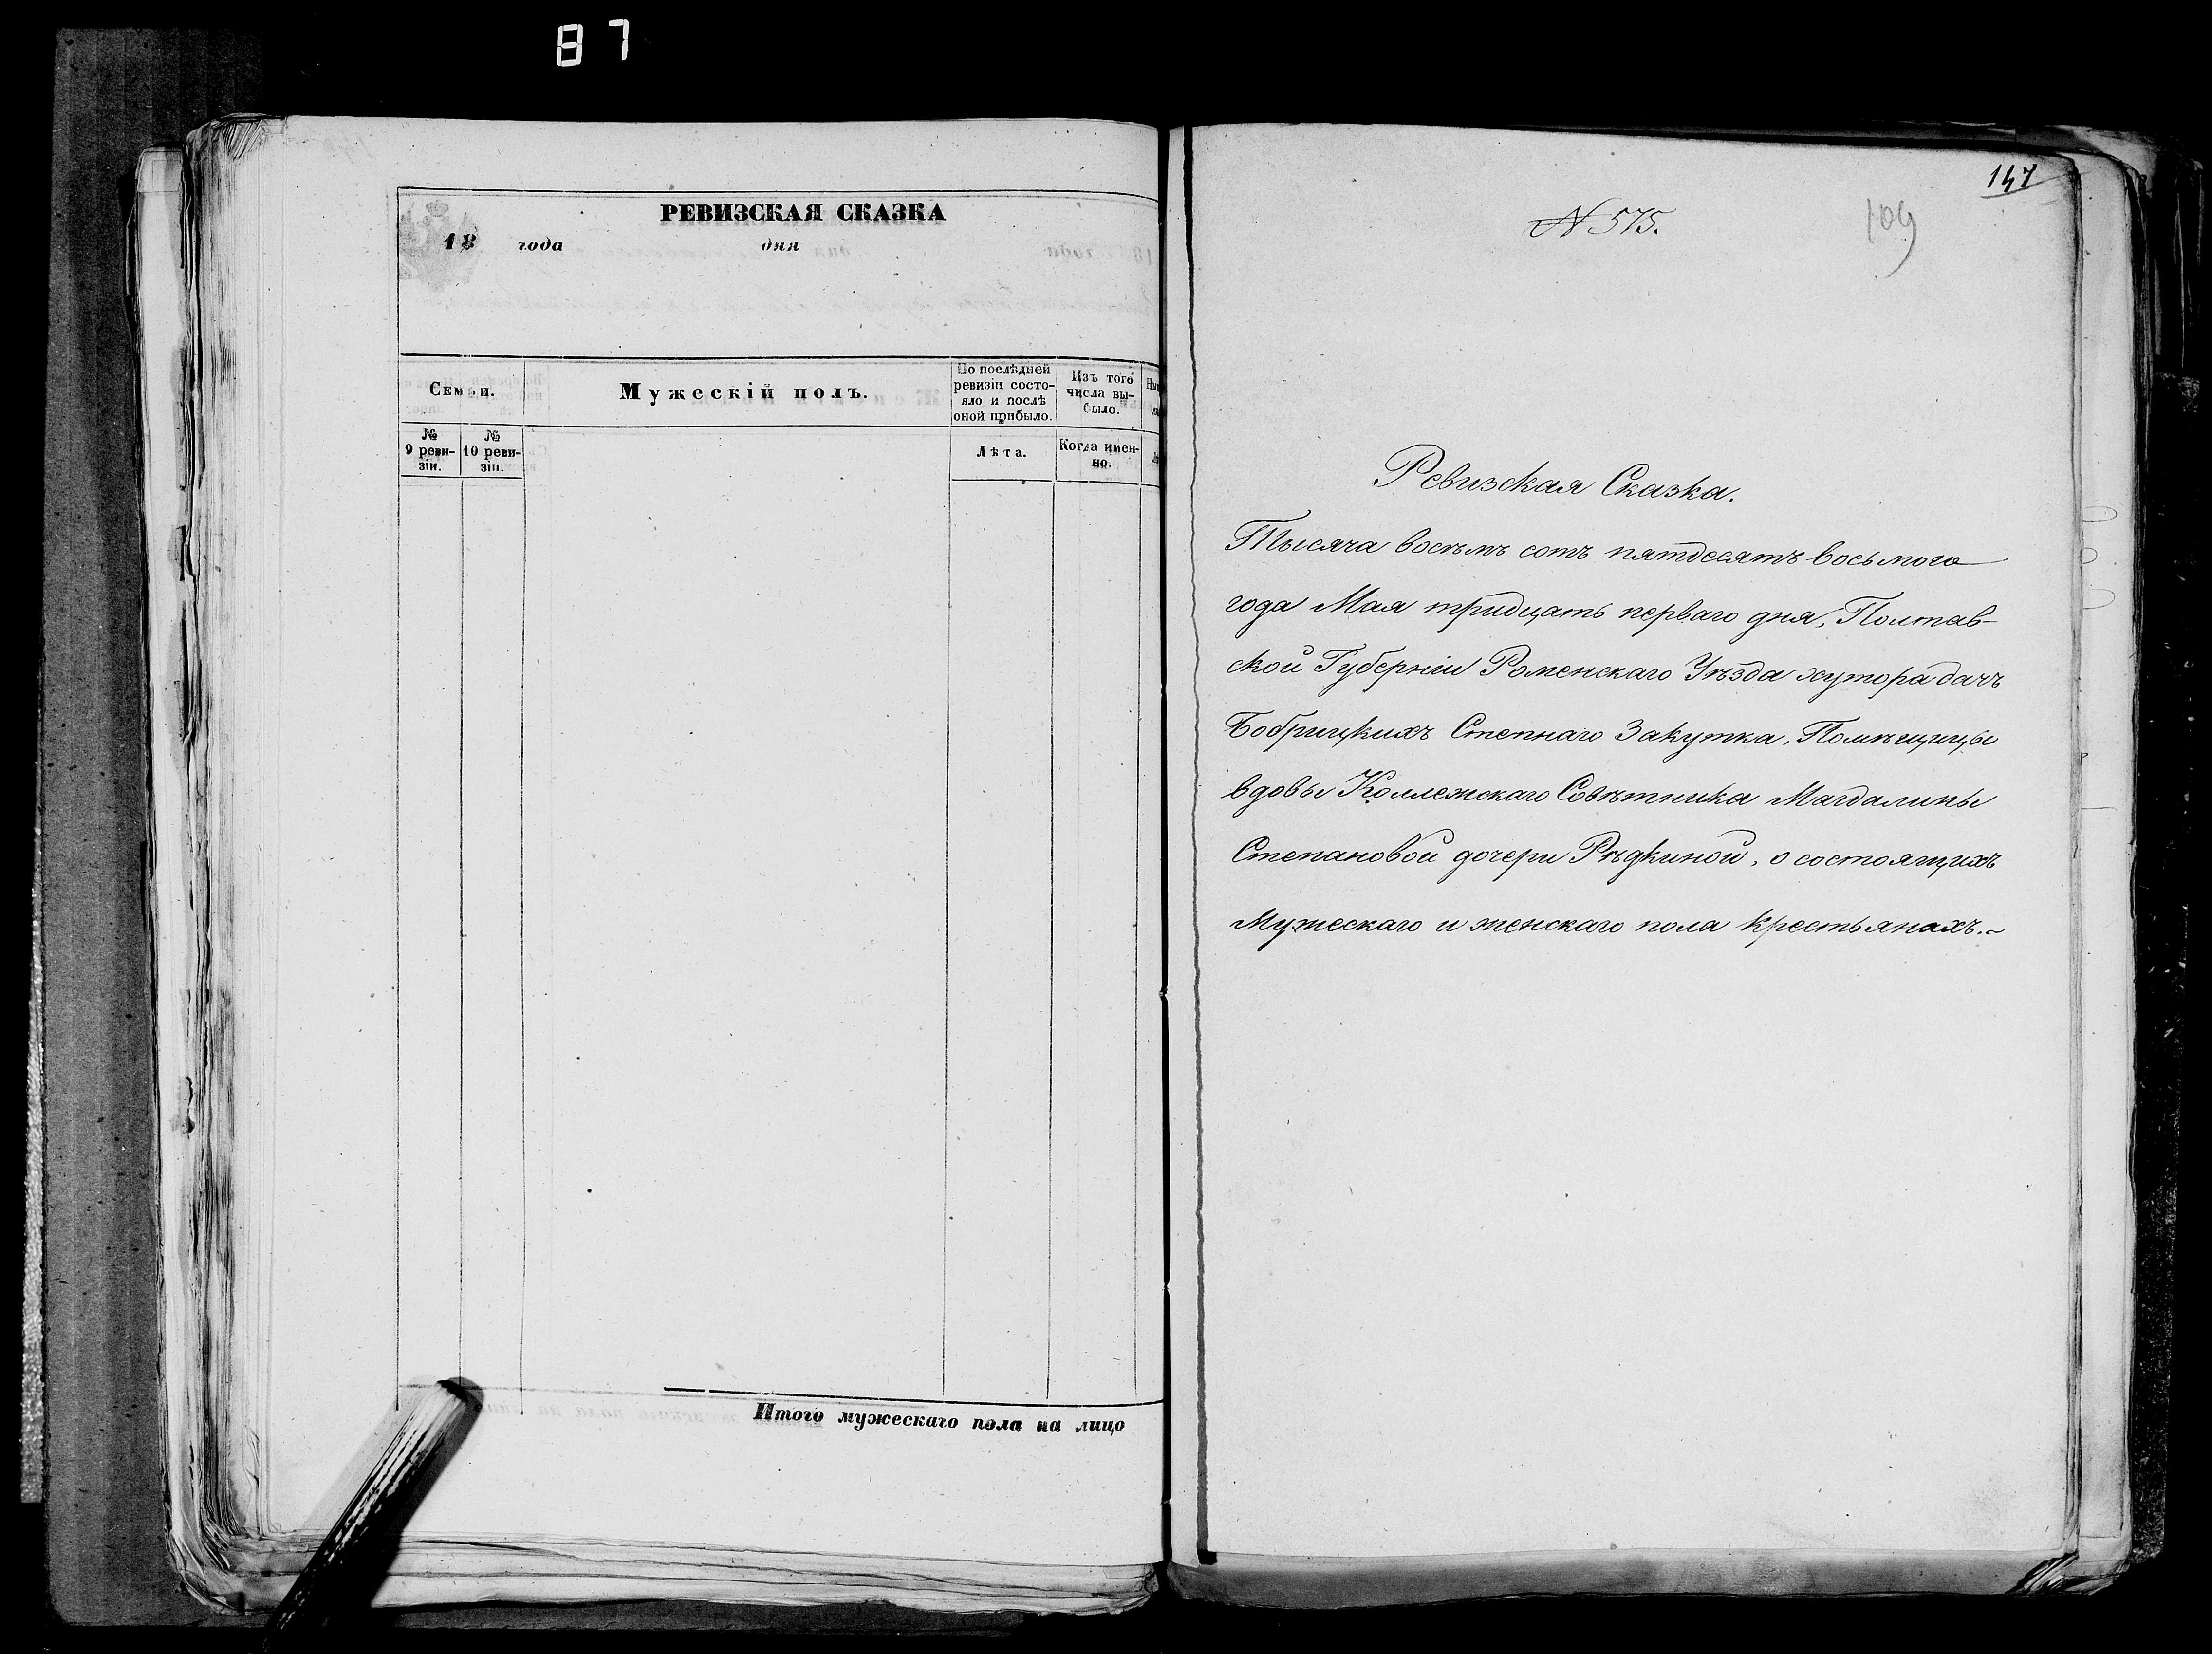 87
РЕВИЗСКАЯ СКАЗКА
18 года дня
Семьи.
Мужескій полъ.
По послѣдней
ревизіи состо-
яло и послѣ
оной прибыло.
Изъ того
числа вы-
было.
№
9 реви-
зіи.
№
10 реви-
зіи.
Лѣта.
Когда имен-
но.
Итого мужескаго пола на лицо
147
109
N 575.
Ревизская Сказка.
Тысяча восемь сотъ пятдесятъ восьмого
года Мая тридцать перваго дня, Полтав-
ской Губерніи Роменскаго Уѣзда хутора дачъ
Бобрицкихъ Степнаго Закутка, Помѣщицы
вдовы Коллежскаго Совѣтника Магдалины
Степановой дочери Рѣдкиной, о состоящихъ
Мужескаго и женскаго пола крестьянахъ.~